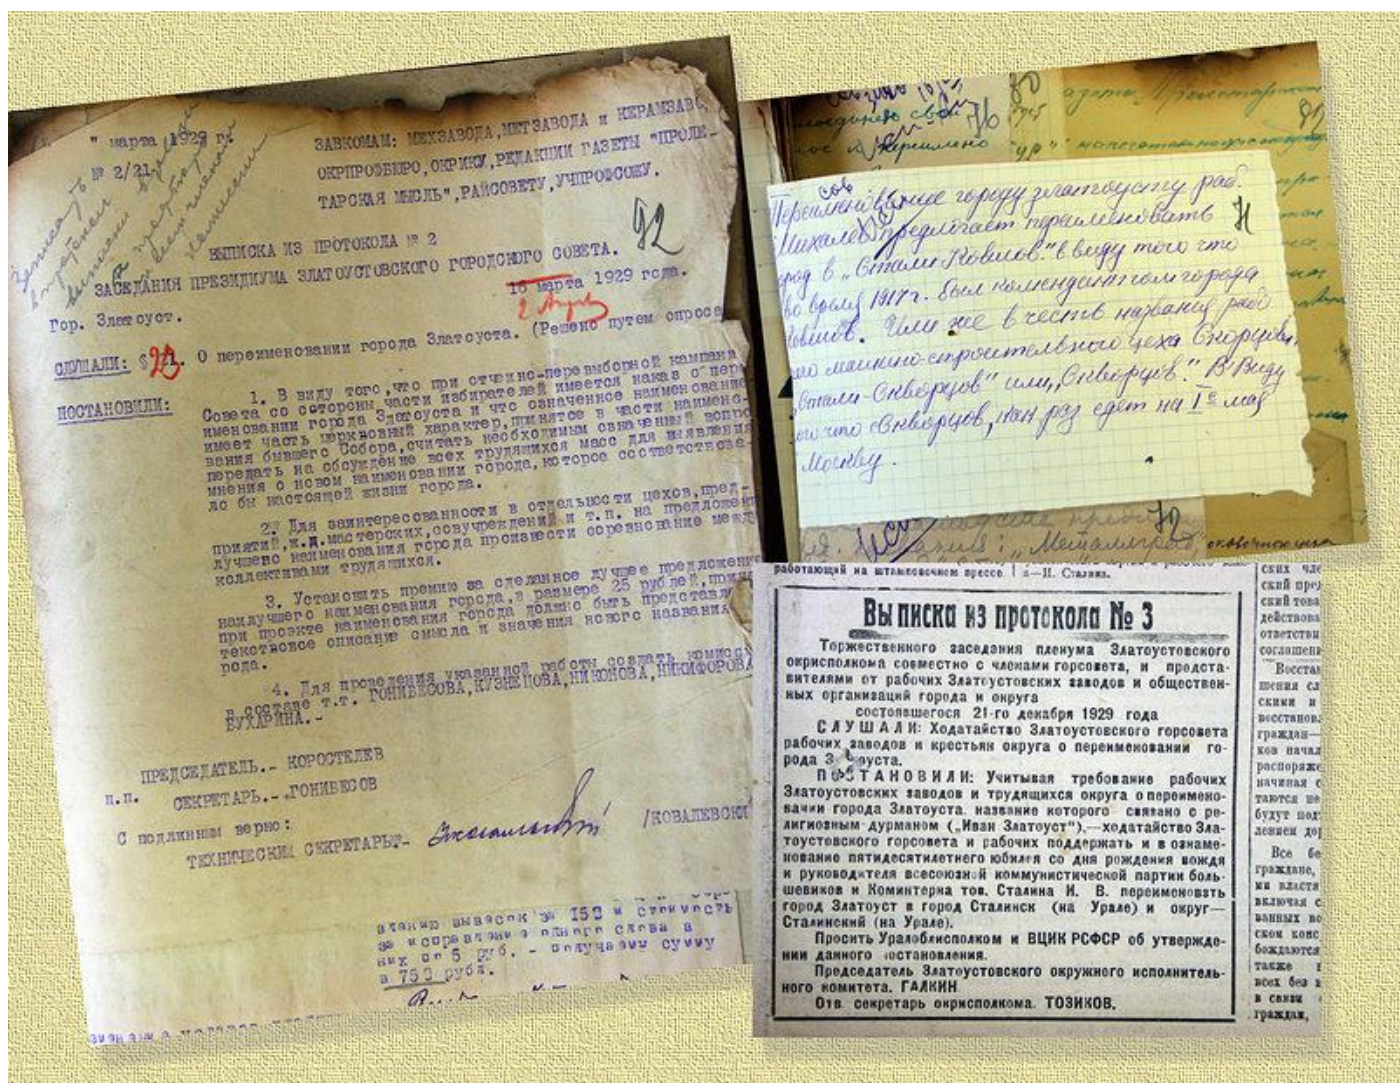 " марта 1929 г.
№ 2/21.
ЗАВКОМАМ: МЕХЗАВОДА, МЕТЗАВОДА и КЕРАМЗАВО
ОКРПРОФБЮРО, ОКРИКУ, РЕДАКЦИИ ГАЗЕТЫ "ПРОЛЕ-
ТАРСКАЯ МЫСЛЬ", РАЙСОВЕТУ, УЧПРОФСОЖУ.
92
ВЫПИСКА ИЗ ПРОТОКОЛА № 2
ЗАСЕДАНИЯ ПРЕЗИДИУМА ЗЛАТОУСТОВСКОГО ГОРОДСКОГО СОВЕТА.
Гор. Златоуст.
16 марта 1929 года.
СЛУШАЛИ: § 23. О переименовании города Златоуста. (Решено путем опроса
ПОСТАНОВИЛИ:
1. В виду того, что при отчетно-перевыборной кампани
Совета со стороны части избирателей имеется наказ о пере
именовании города Златоуста и что означенное наименование
имеет часть церковный характер, принятое в части наимено-
вания бывшего Собора, считать необходимым означенный вопро
передать на обсуждение всех трудящихся масс для выявления
мнения о новом наименовании города, которое соответствова-
ло бы настоящей жизни города.
2. Для заинтересованности в отдельности цехов, пред-
приятий, ж.д. мастерских, совучреждений и т.п. на предложени
лучшего наименования города произвести соревнование между
коллективами трудящихся.
3. Установить премию за сделанное лучшее предложение
наилучшего наименования города, в размере 25 рублей, прич
при проэкте наименования города должно быть представле
текстовое описание смысла и значения нового названия
рода.
4. Для проведения указанной работы создать комисс
в составе т.т. ГОНИБЕСОВА, КУЗНЕЦОВА, НИКОНОВА, НИКИФОРОВА
БУХАРИНА.-
ПРЕДСЕДАТЕЛЬ.- КОРОСТЕЛЕВ
п.п. СЕКРЕТАРЬ.- ГОНИБЕСОВ
С подлинным верно:
ТЕХНИЧЕСКИЙ СЕКРЕТАРЬ- /КОВАЛЕВСКИ
вывесок за 150 и стоимость
за исправление одного слова в
них по 5 руб. - получаем сумму
в 750 рубл.
Переименование городу златоусту раб.
Михалев предлогает переименовать
ород в „Стали-Ковшов." в виду того что
во время 1917 г. был комендантом города
Ковшов. Или же в честь названия рабо
его машино-строительного цеха Скворцова
„Стали-Скворцов" или „Скворцов". В виду
ого что Скворцов, как раз едет на I е мая
Москву.
71
72
„Металлград",
работающий на штамповочном прессе
—И. Сталина.
Выписка из протокола № 3
Торжественного заседания пленума Златоустовского
окрисполкома совместно с членами горсовета, и предста-
вителями от рабочих Златоустовских заводов и обществен-
ных организаций города и округа
состоявшегося 21-го декабря 1929 года
СЛУШАЛИ: Ходатайство Златоустовского горсовета
рабочих заводов и крестьян округа о переименовании го-
рода З оуста.
ПОСТАНОВИЛИ: Учитывая требование рабочих
Златоустовских заводов и трудящихся округа о переимено-
вании города Златоуста, название которого связано с ре-
лигиозным дурманом („Иван Златоуст").—ходатайство Зла-
тоустовского горсовета и рабочих поддержать и в ознаме-
нование пятидесятилетнего юбилея со дня рождения вождя
и руководителя всесоюзной коммунистической партии боль-
шевиков и Коминтерна тов. Сталина И. В. переименовать
город Златоуст в город Сталинск (на Урале) и округ—
Сталинский (на Урале).
Просить Уралоблисполком и ВЦИК РСФСР об утвержде-
нии данного постановления.
Председатель Златоустовского окружного исполнитель-
ного комитета. ГАЛКИН
Отв. секретарь окрисполкома. ТОЗИКОВ.